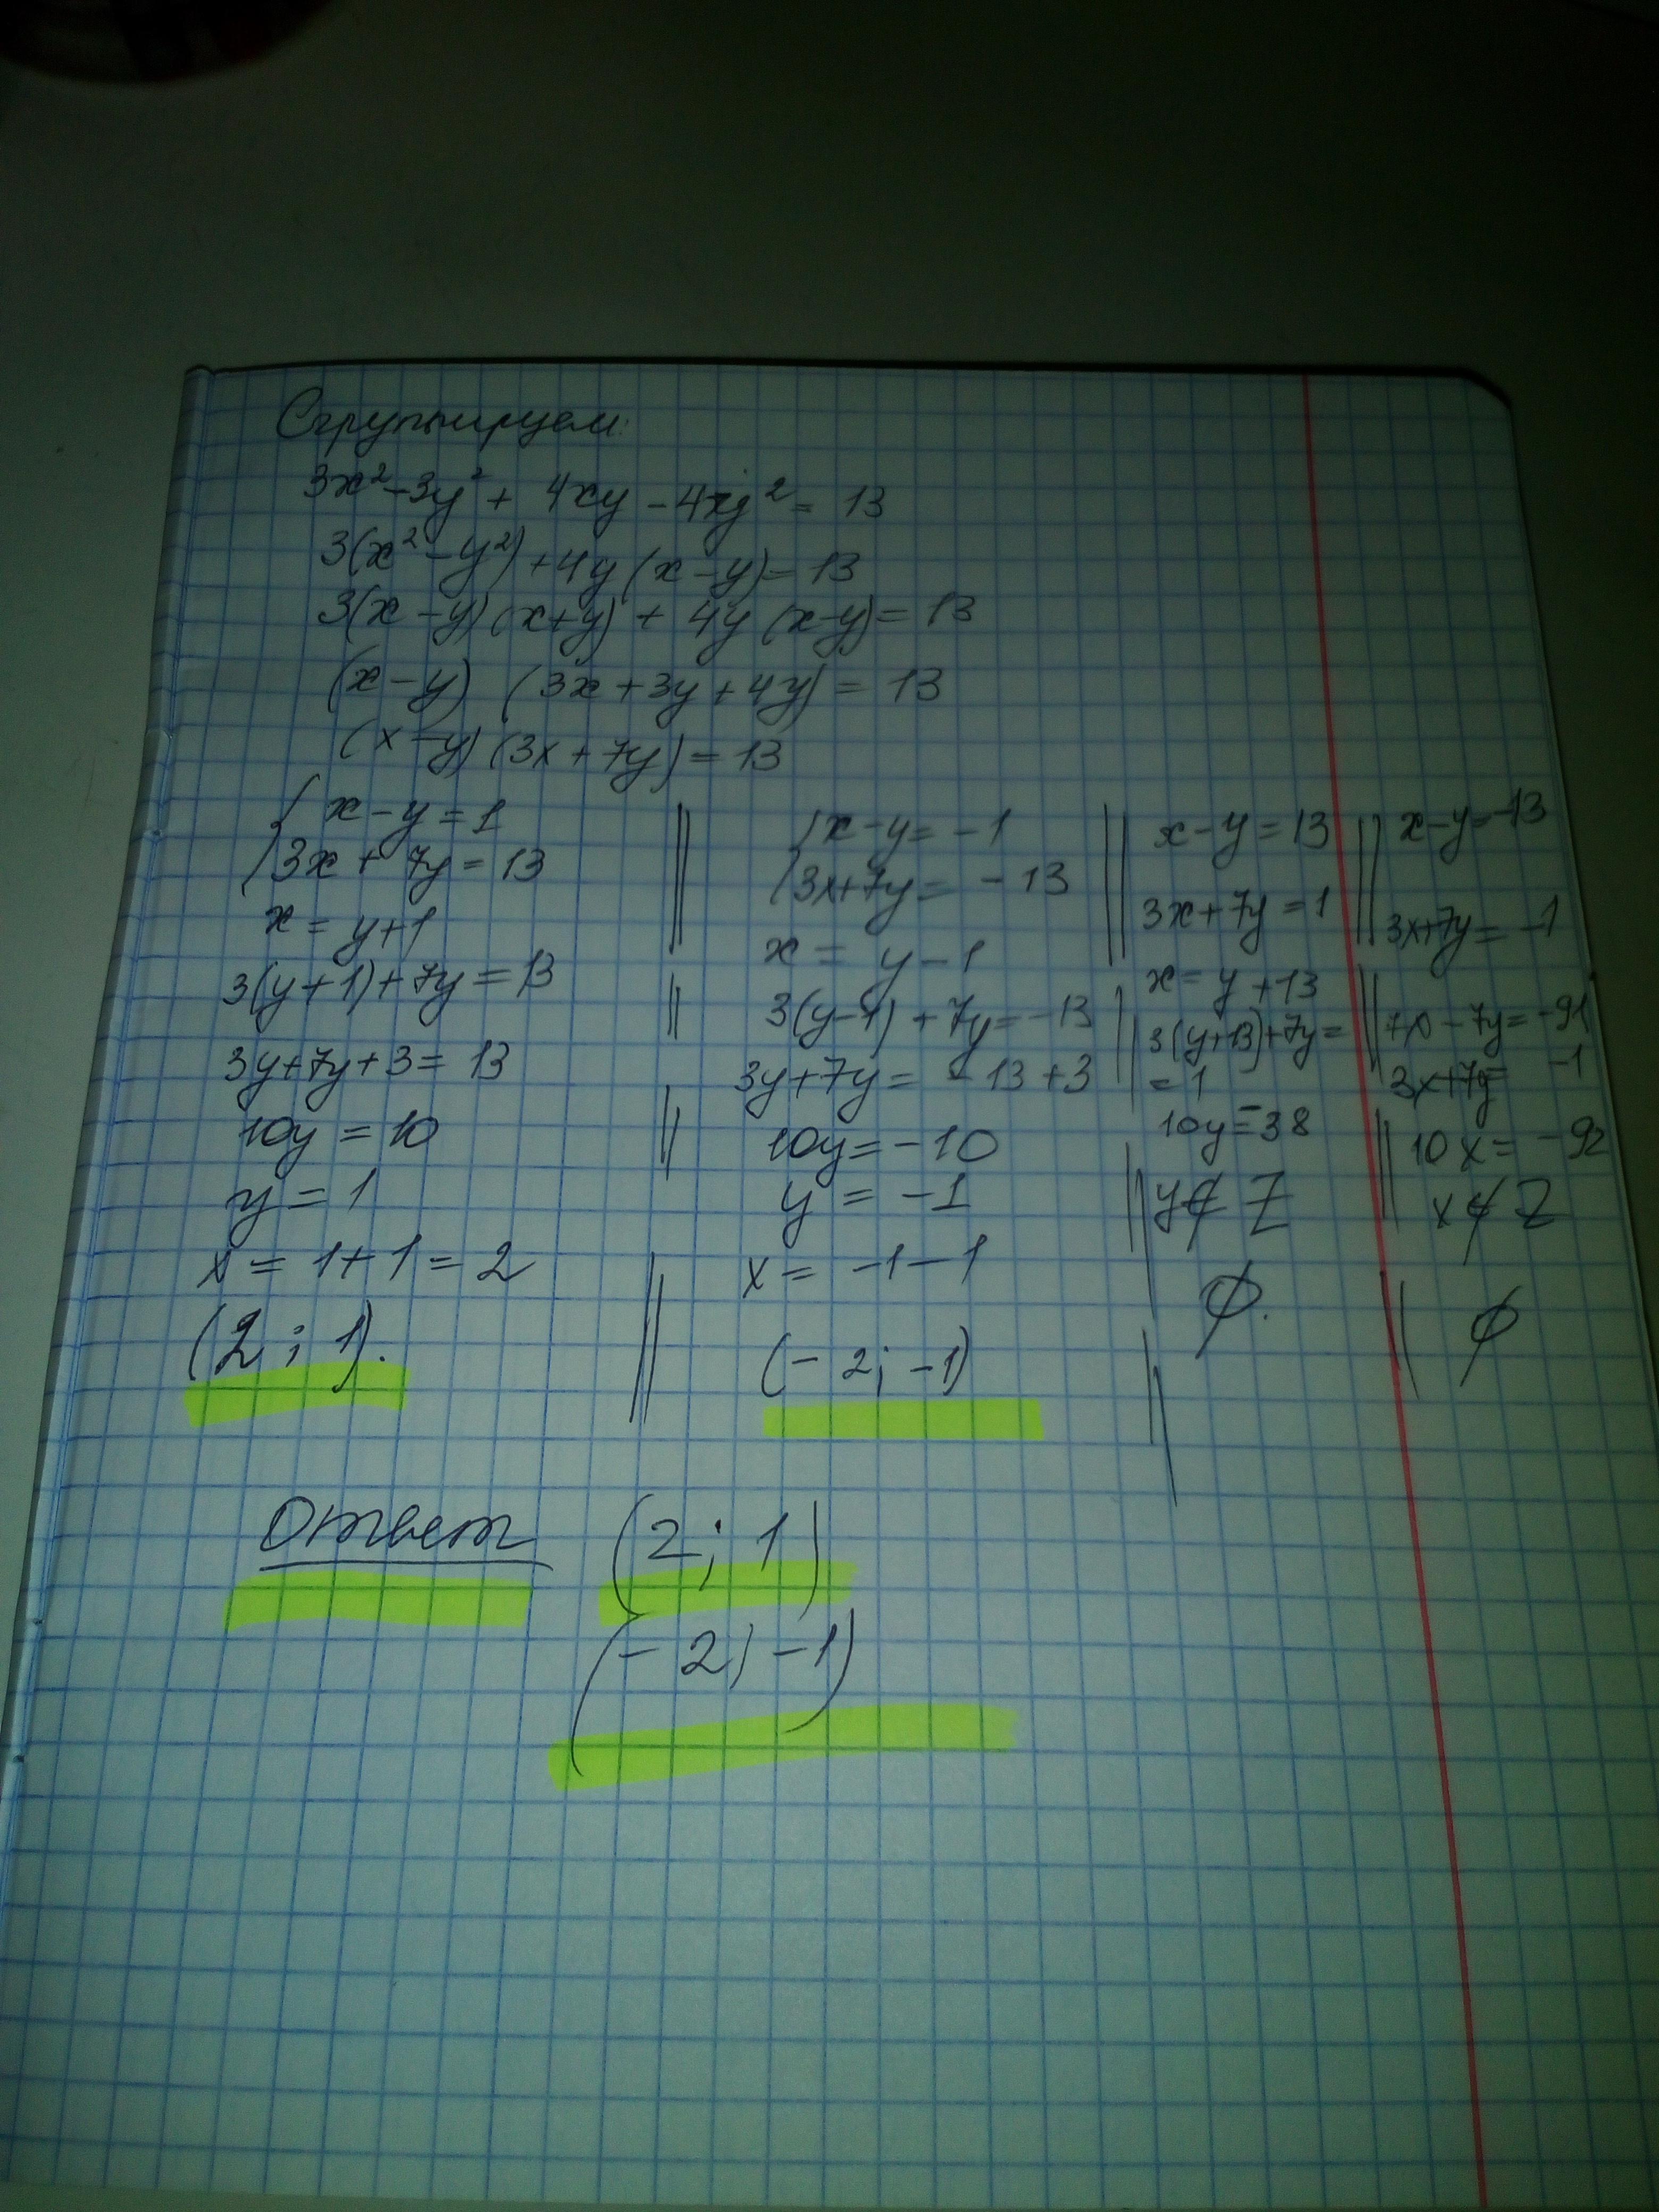 Сгруппируем:
3x²-3y²+ 4xy -4xy²= 13
3(x²-y²)+4y(x-y)=13
3(x-y)(x+y)+ 4y(x-y)=13
(x-y) (3x+3y+4y)= 13
(x-y)(3x+7y)=13
{ x-y=1
3x+7y=13
x=y+1
3(y+1)+7y=13
3y+7y+3=13
10y=10
y=1
x=1+1=2
(2; 1).
{ x-y=-1
3x+7y= -13
x= y-1
3(y-1)+7y=-13
3y+7y= -13+3
10y=-10
y=-1
x= -1-1
(-2; -1)
x-y=13
3x+7y=1
x=y+13
3(y+13)+7y=
=1
10y=-38
y∉Z
∅.
x-y=-13
3x+7y=-1
7x-7y=-91
3x+7y= -1
10x=-92
x∉Z
∅
Ответ (2; 1)
(-2; -1)